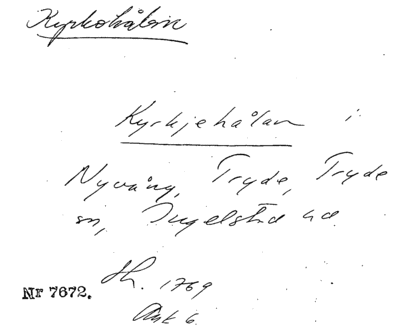 Kyrkohålan
Kyrkjehålan i
Nyvång, Tryde, Tryde
sn, Ingelstad hd.
Sk. 1769
Ark 6.
Nr 7672.